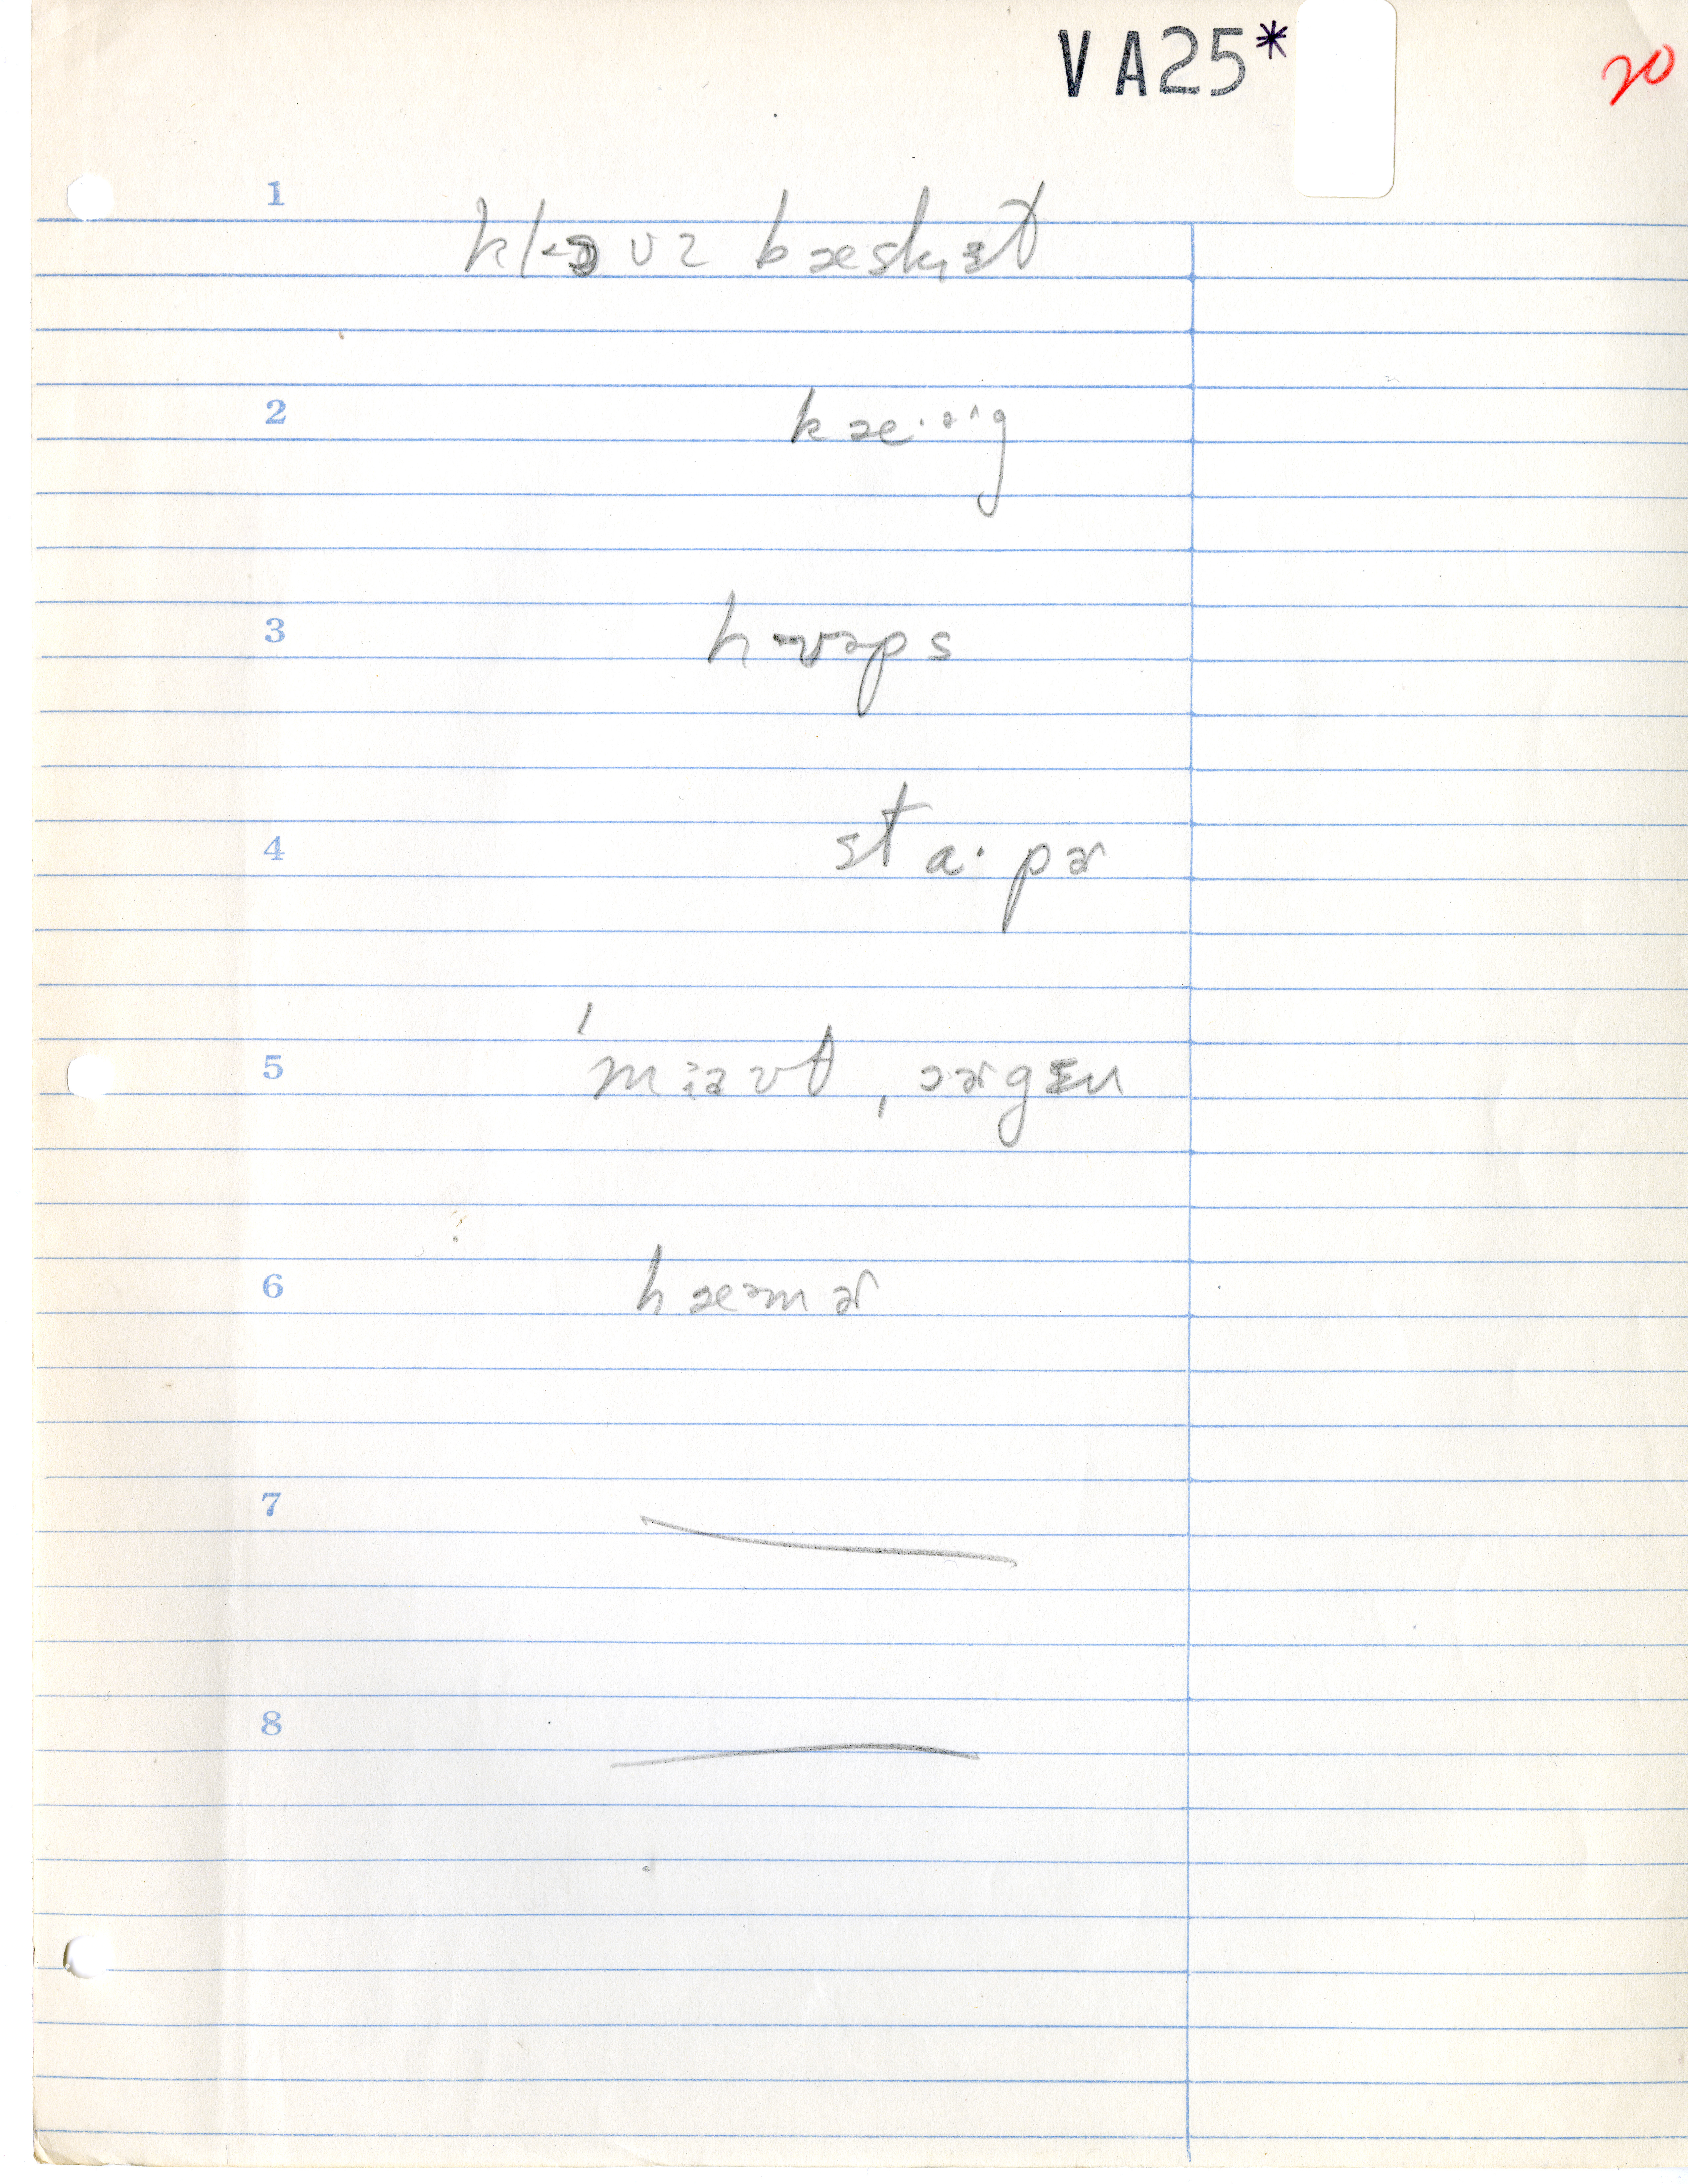 VA25*
20
1 kl·ɔʊz bæskɪ̵t
2 kæ·ə^g
3 h·ʊəps
4 sta·pɚ
5 'mɪəʊt, ɔɚgɛn
6 hæəmɚ
7
8